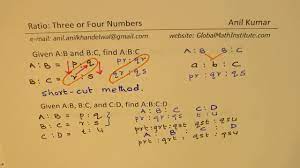 Ratio: Three or Four Numbers Anil Kumar
e-mail: anil.anilkhandelwal@gmail.com website: GlobalMathInstitute.com
Given A:B and B:C, find A:B:C
A : B = p : q
B : C = r : s
pr : qr
qr : qs
pr : qr : qs
short-cut method.
A : B B : C
a : b : c
pr : qr : qs
Given A:B, B:C, and C:D, find A:B:C:D
A : B = p : q
B : C = r : s
C : D = t : u
A : B : C C : D
pr : qr : qs t : u
prt : qrt : qst qst : qsu
A : B : C : D
prt : qrt : qst : qsu